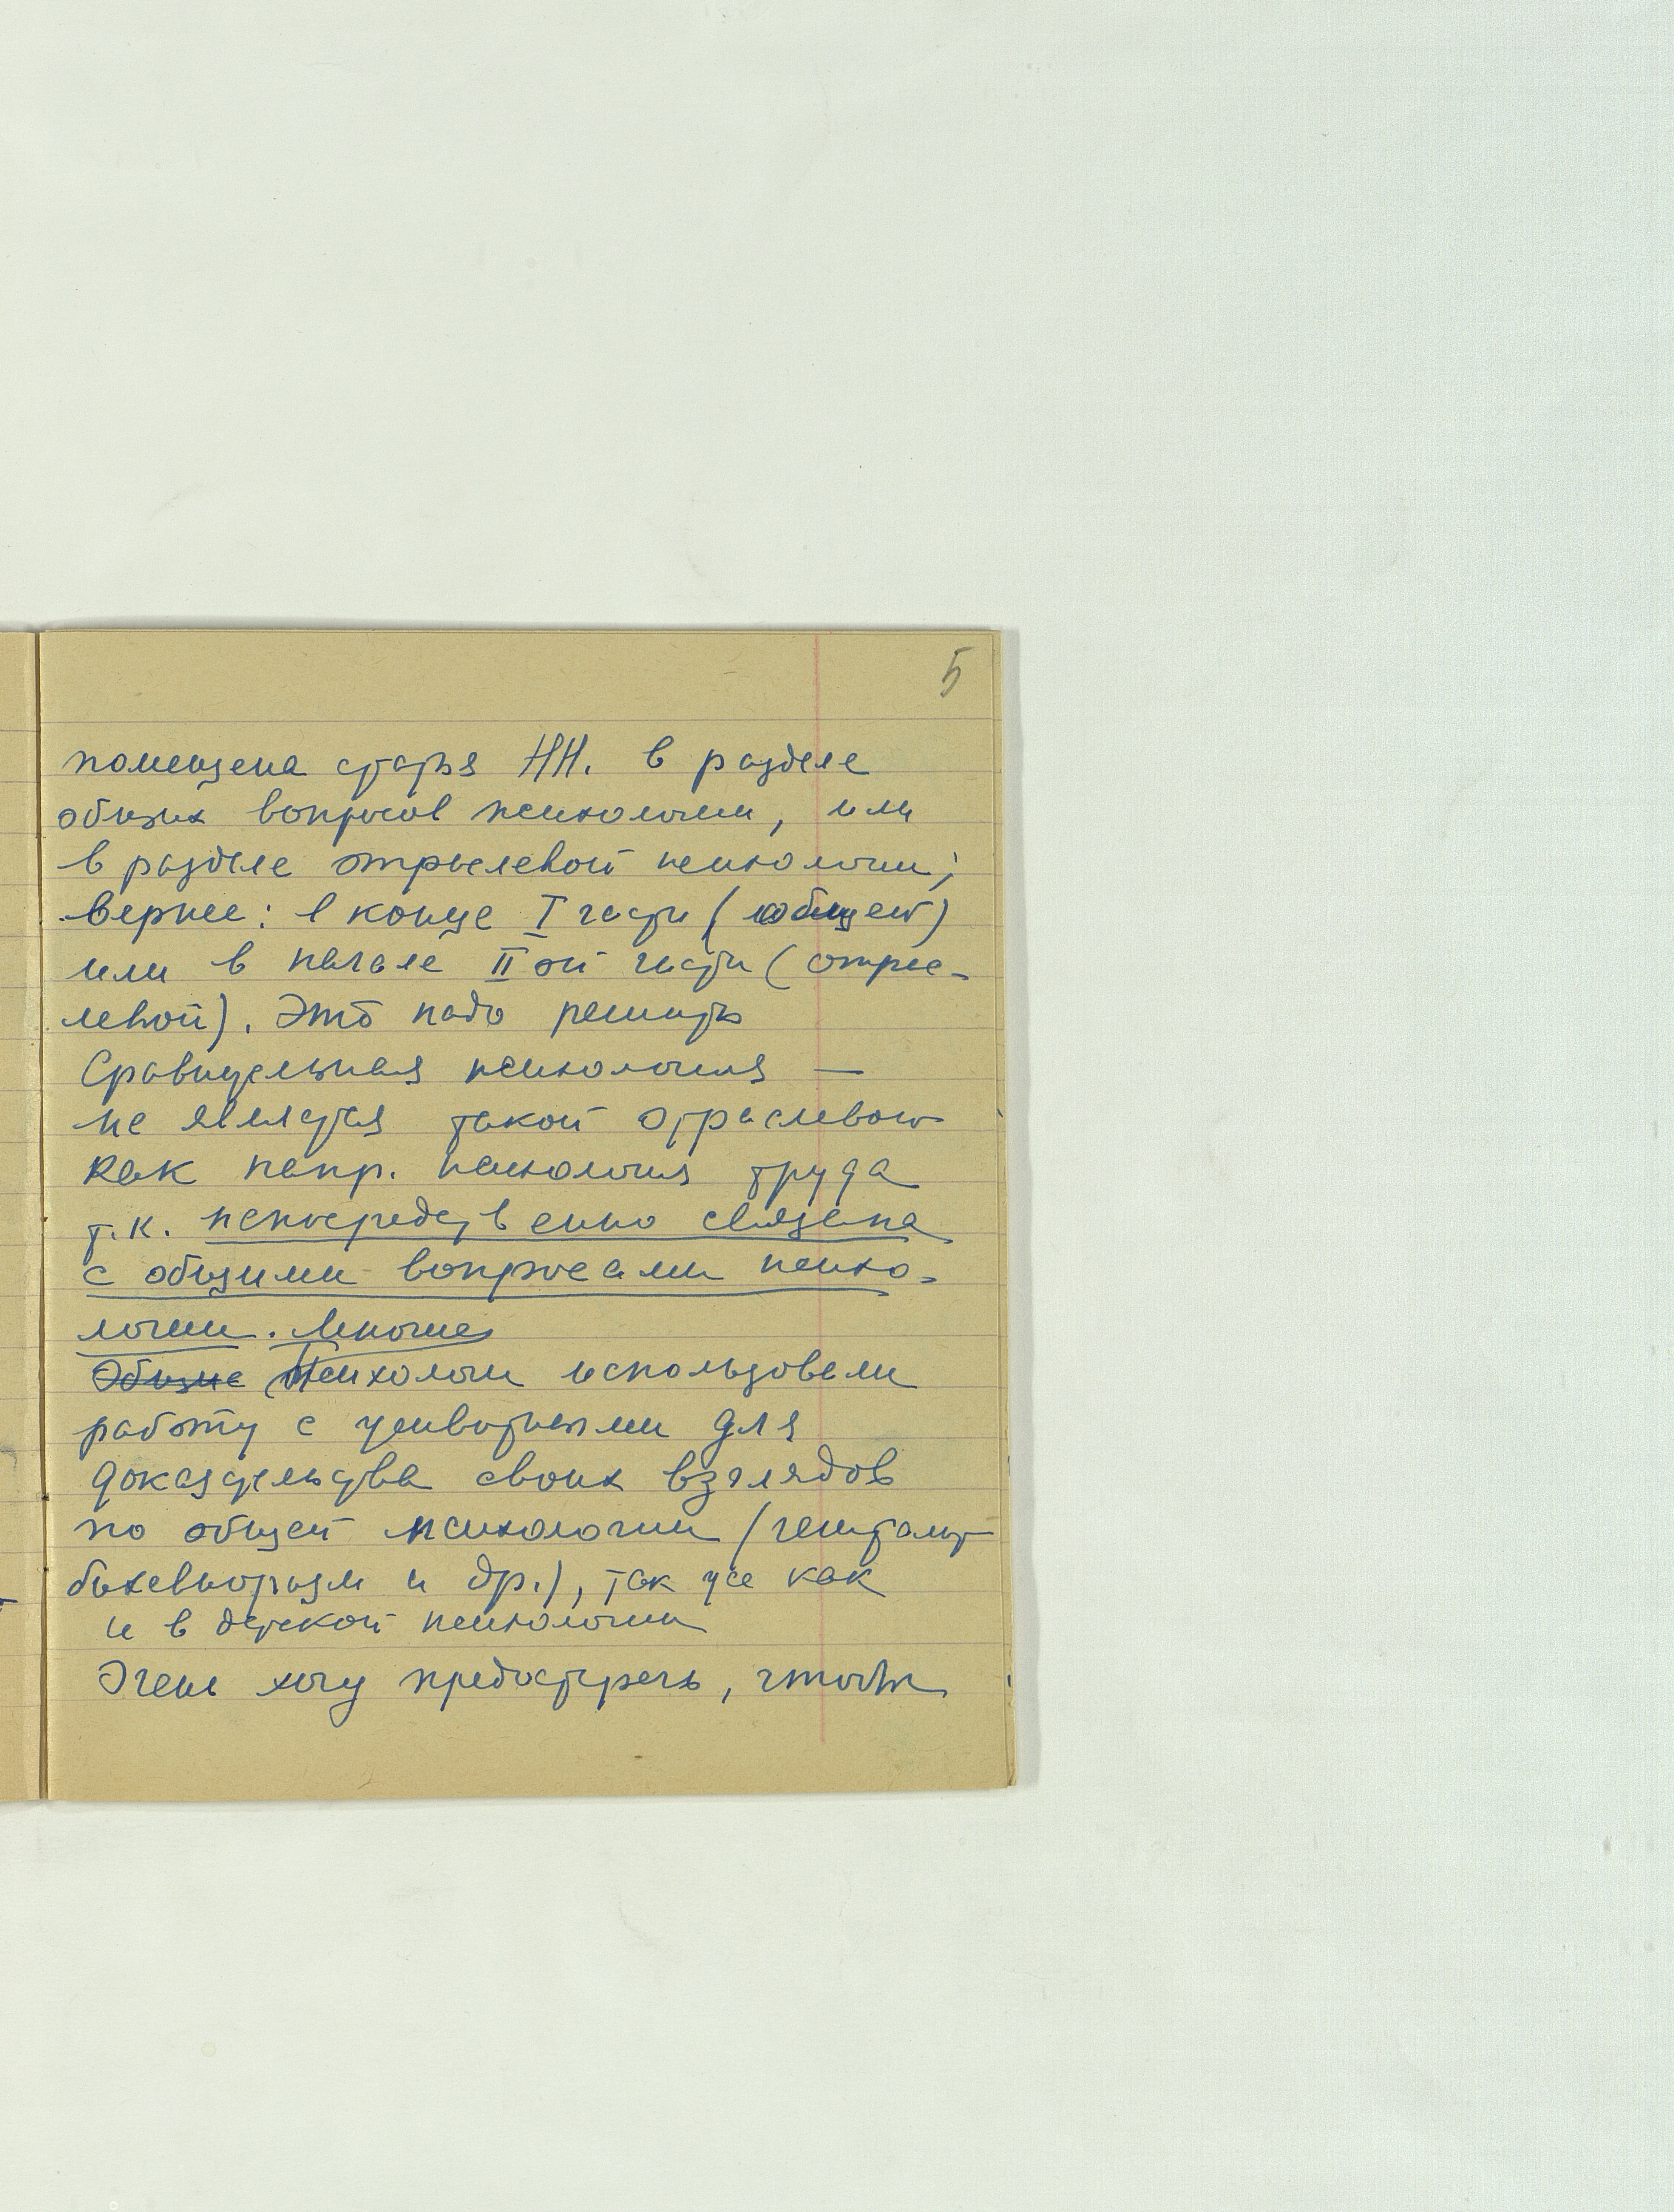 5
помещена статья НН. в разделе
общих вопросов психологии, или
в разделе отраслевой психологии;
вернее: в конце I части (общей)
или в начале II ой части (отрас-
левой). Это надо решить
Сравнительная психология —
не является такой отраслевой
как напр. психология труда
т.к. непосредственно связана
с общими вопросами психо-
логии. Многие
Общие Психологи использовали
работу с животными для
доказательства своих взглядов
по общей психологии (гештальт
бихевиоризм и др.), так же как
и в детской психологии
Очень хочу предостеречь, чтобы